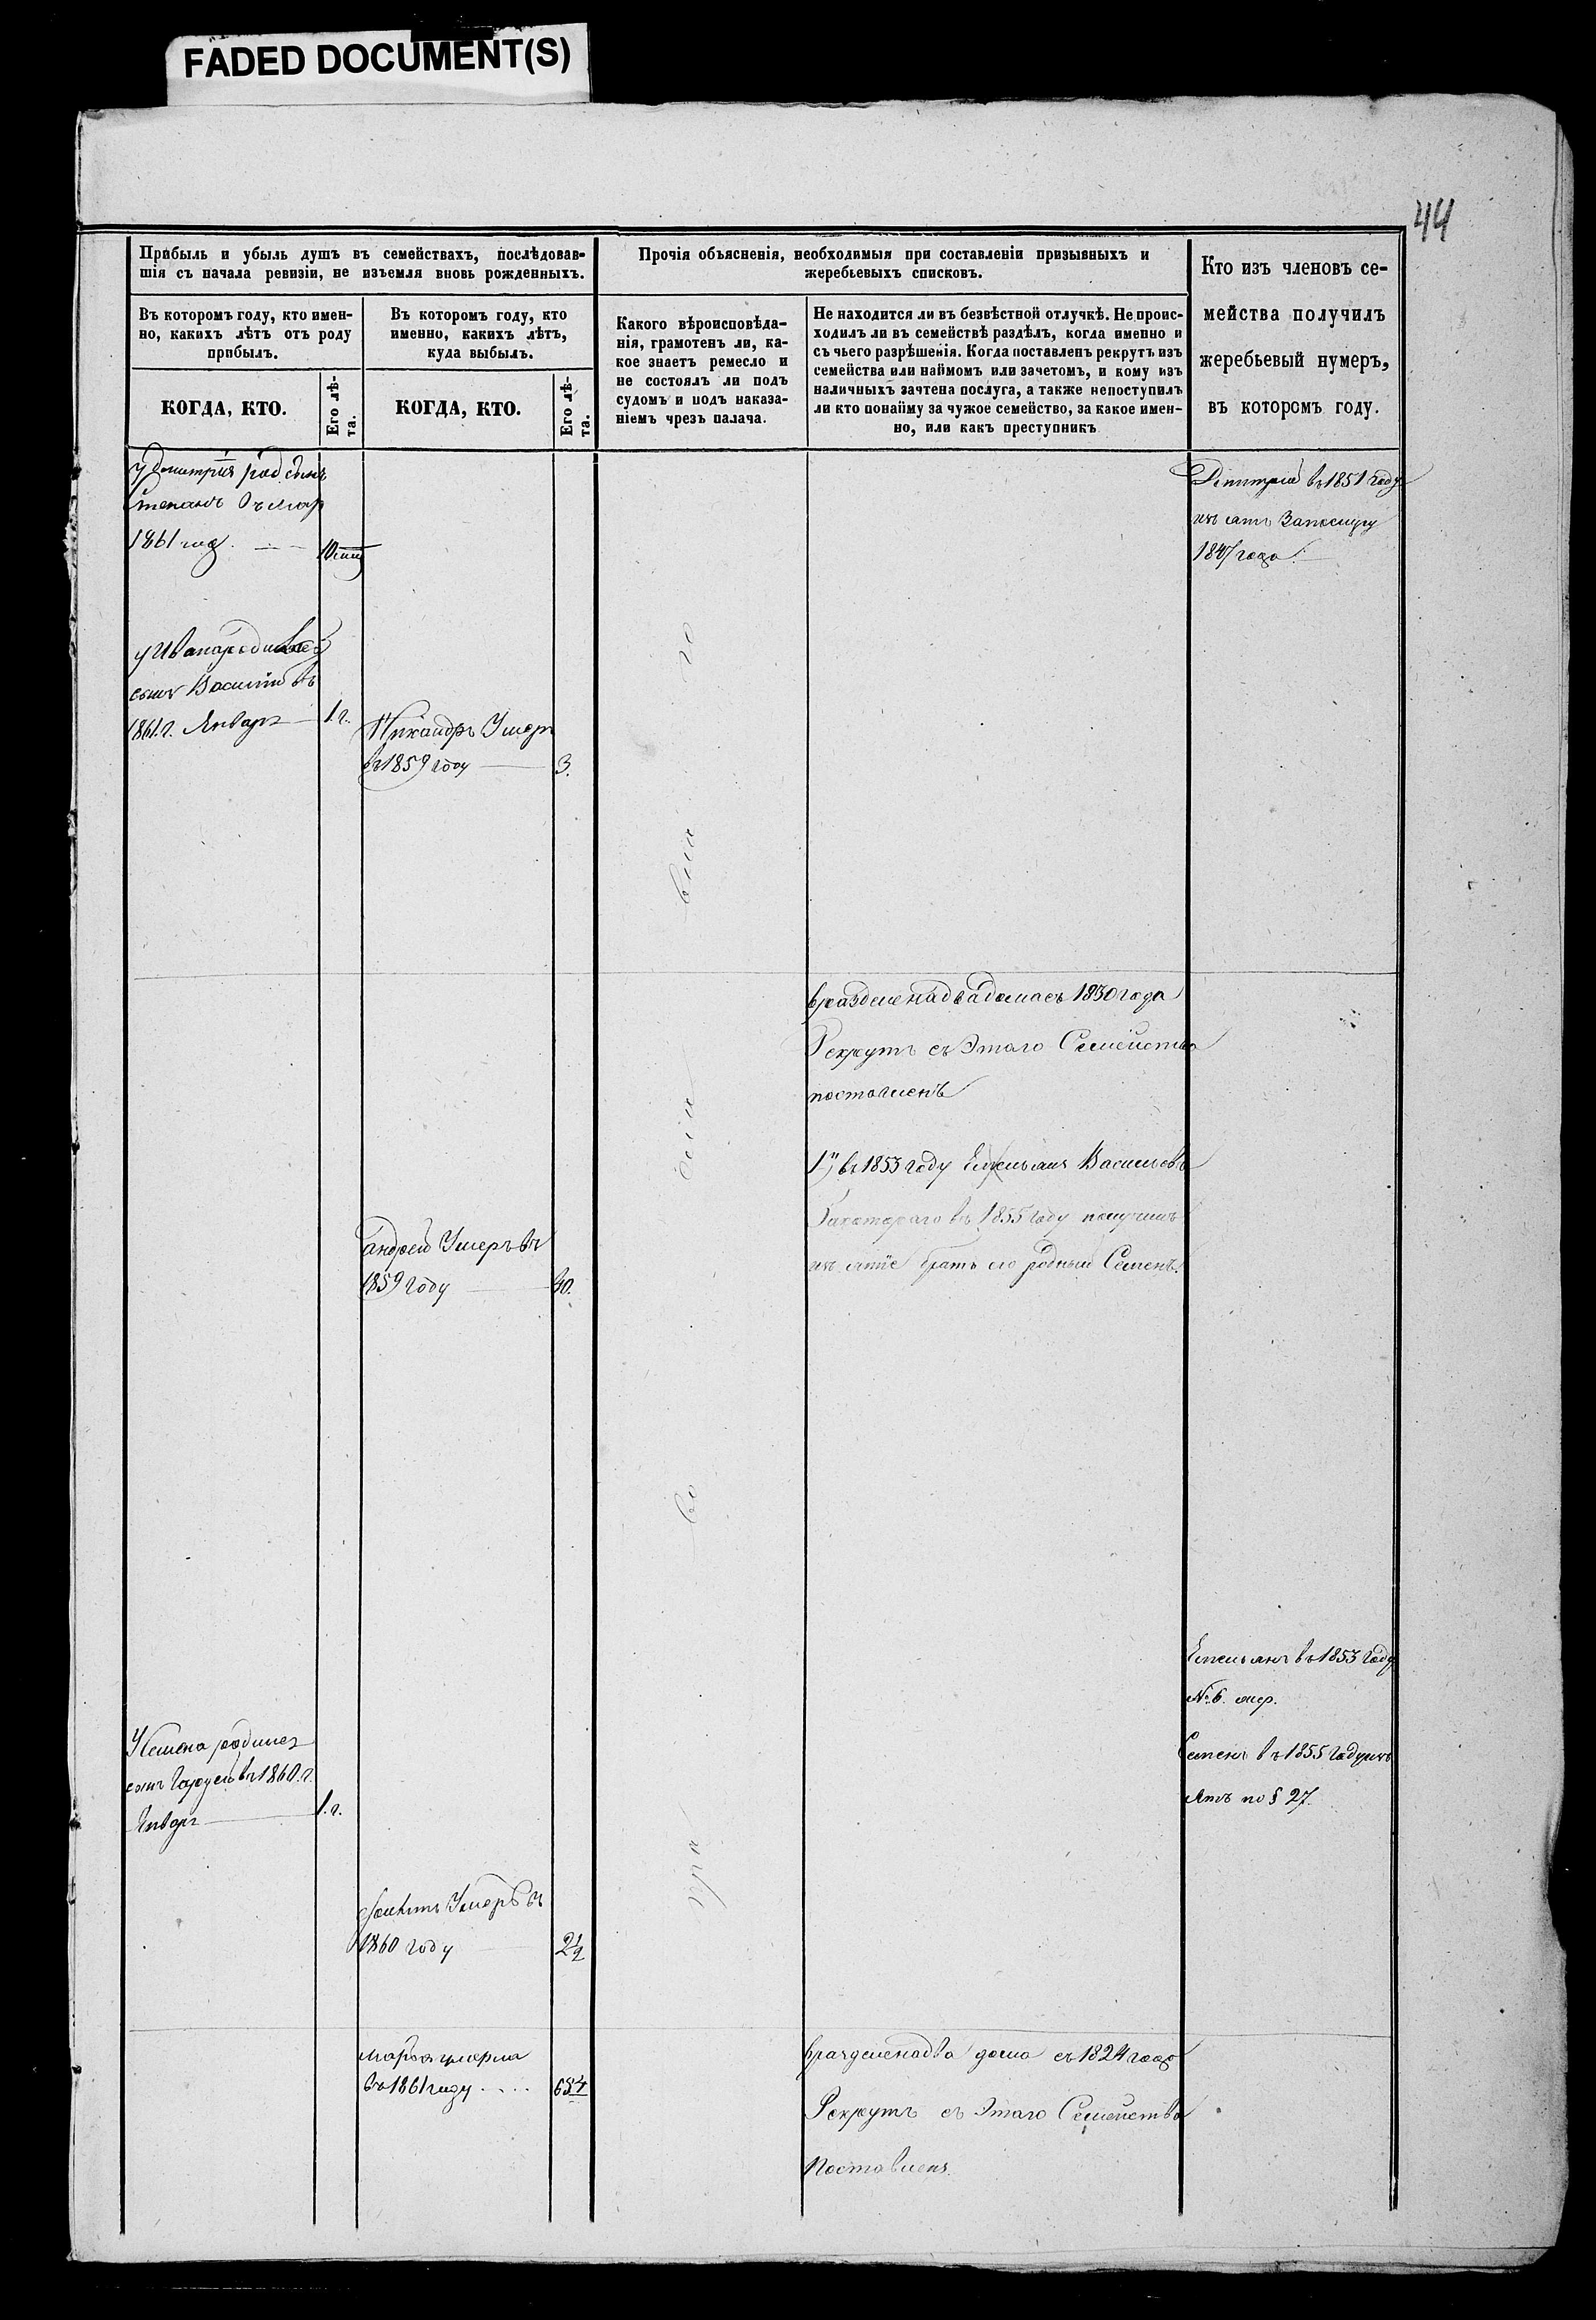 FADED DOCUMENT(S)
44
Прибыль и убыль душъ въ семействахъ, послѣдовав-
шія съ начала ревизіи, не изъемля вновь рожденныхъ.
Въ которомъ году, кто имен-
но, какихъ лѣтъ отъ роду
прибылъ.
КОГДА, КТО.
Его лѣ-
та.
Въ которомъ году, кто
именно, какихъ лѣтъ,
куда выбылъ.
КОГДА, КТО.
Его лѣ-
та.
Прочія объясненія, необходимыя при составленіи призывныхъ и
жеребьевыхъ списковъ.
Какого вѣроисповѣда-
нія, грамотенъ ли, ка-
кое знаетъ ремесло и
не состоялъ ли подъ
судомъ и подъ наказа-
ніемъ чрезъ палача.
Не находится ли въ безвѣстной отлучкѣ. Не проис-
ходилъ ли въ семействѣ раздѣлъ, когда именно и
съ чьего разрѣшенія. Когда поставленъ рекрутъ изъ
семейства или наймомъ или зачетомъ, и кому изъ
наличныхъ зачтена послуга, а также непоступилъ
ли кто понайму за чужое семейство, за какое имен-
но, или какъ преступникъ
Кто изъ членовъ се-
мейства получилъ
жеребьевый нумеръ,
въ которомъ году.
у Дмитрия род. сынъ
Степанъ
1861 год.
Дмитрий въ 1851 году
1847 года.
у Ивана родился
сынъ Василий въ
1861.г. Январ
1.г.
Никандръ Умеръ
въ 1859 году
3.
вразделе на два дома съ 1830 года
Рекрутъ съ Этаго Семейства
поставленъ
1й въ 1853 году Емельянъ Васильевъ
въ 1855 году получилъ
братъ его родный Семенъ.
андрей Умеръ въ
1859 году
40.
Емельянъ въ 1853 году
№ 6. мер.
Семенъ въ 1855 году
по § 27.
родился
сынъ въ 1860.г.
Январ
1.г.
Умеръ въ
1860 году
2 1/2
марфа умерла
въ 1861 году
вразделе на два дома съ 1824 года
Рекрутъ съ Этаго Семейства
Поставленъ.